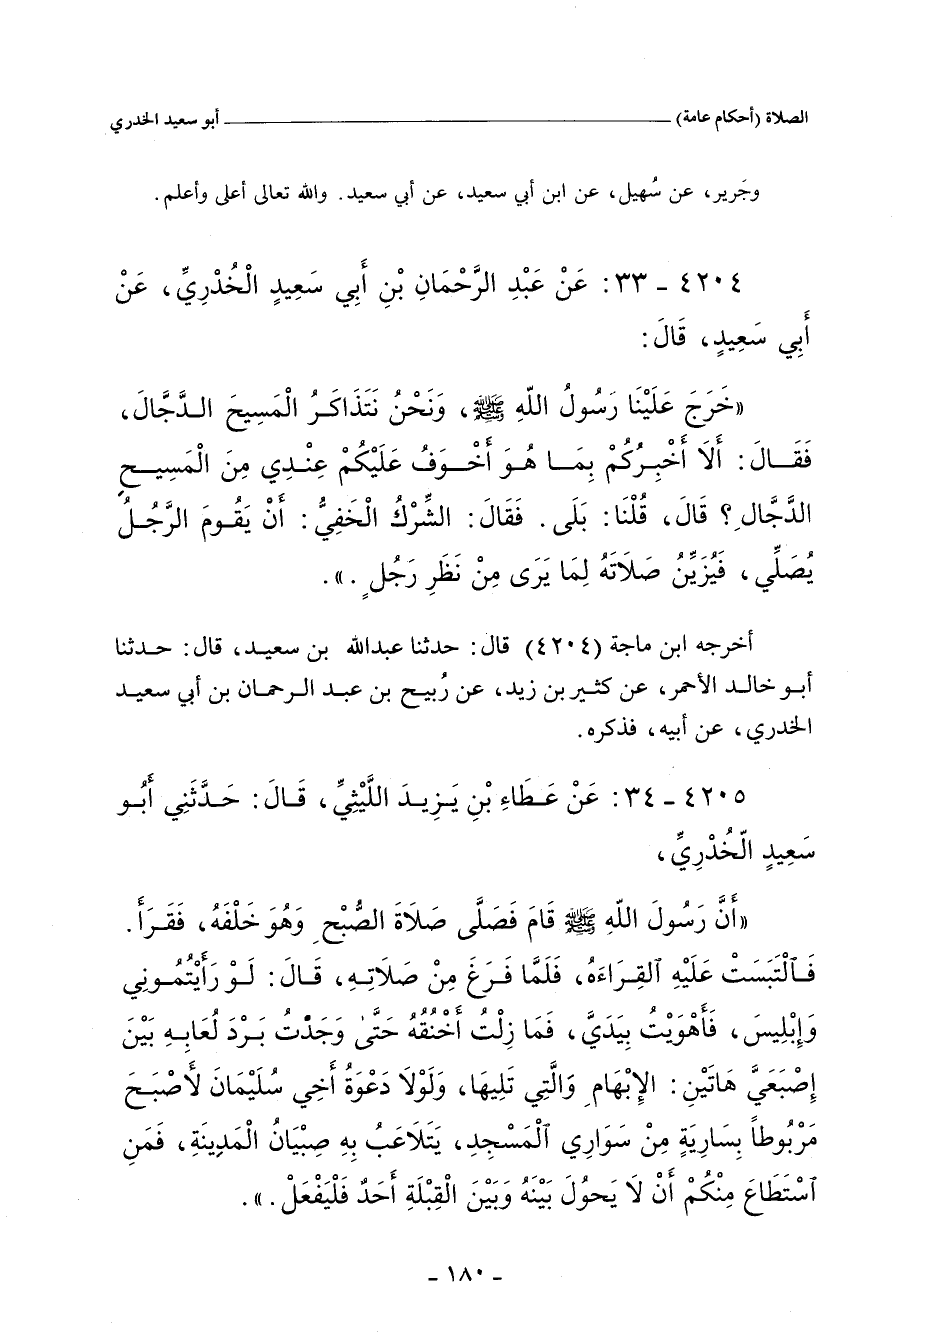 الصلاة (أحكام عامة) ــــــــــ أبو سعيد الخدري
وجَرير، عن سُهيل، عن ابن أبي سعيد، عن أبي سعيد. والله تعالى أعلى وأعلم.
٤٢٠٤ ـ ٣٣: عَنْ عَبْدِ الرَّحْمَانِ بْنِ أَبِي سَعِيدٍ الْخُدْرِيِّ، عَنْ
أَبِي سَعِيدٍ، قَالَ:
«خَرَجَ عَلَيْنَا رَسُولُ اللّهِ ﷺ، وَنَحْنُ نَتَذَاكَرُ الْمَسِيحَ الدَّجَّالَ،
فَقَالَ: أَلَا أُخْبِرُكُمْ بِمَا هُوَ أَخْوَفُ عَلَيْكُمْ عِنْدِي مِنَ الْمَسِيحِ
الدَّجَّالِ؟ قَالَ، قُلْنَا: بَلَى. فَقَالَ: الشِّرْكُ الْخَفِيُّ: أَنْ يَقُومَ الرَّجُلُ
يُصَلِّي، فَيُزَيِّنُ صَلَاتَهُ لِمَا يَرَى مِنْ نَظَرِ رَجُلٍ.».
أخرجه ابن ماجة (٤٢٠٤) قال: حدثنا عبدالله بن سعيد، قال: حدثنا
أبو خالد الأحمر، عن كثير بن زيد، عن رُبيح بن عبد الرحمان بن أبي سعيد
الخدري، عن أبيه، فذكره.
٤٢٠٥ ـ ٣٤: عَنْ عَطَاءِ بْنِ يَزِيدَ اللَّيْثِيِّ، قَالَ: حَدَّثَنِي أَبُو
سَعِيدٍ الْخُدْرِيِّ،
«أَنَّ رَسُولَ اللّهِ ﷺ قَامَ فَصَلَّى صَلَاةَ الصُّبْحِ وَهُوَ خَلْفَهُ، فَقَرَأَ.
فَٱلْتَبَسَتْ عَلَيْهِ ٱلْقِرَاءَةُ، فَلَمَّا فَرَغَ مِنْ صَلَاتِهِ، قَالَ: لَوْ رَأَيْتُمُونِي
وَإِبْلِيسَ، فَأَهْوَيْتُ بِيَدَيَّ، فَمَا زِلْتُ أَخْنُقُهُ حَتَّى وَجَدْتُ بَرْدَ لُعَابِهِ بَيْنَ
إِصْبَعَيَّ هَاتَيْنِ: الإِبْهَامِ وَالَّتِي تَلِيهَا، وَلَوْلَا دَعْوَةُ أَخِي سُلَيْمَانَ لَأَصْبَحَ
مَرْبُوطاً بِسَارِيَةٍ مِنْ سَوَارِي ٱلْمَسْجِدِ، يَتَلَاعَبُ بِهِ صِبْيَانُ الْمَدِينَةِ، فَمَنِ
ٱسْتَطَاعَ مِنْكُمْ أَنْ لَا يَحُولَ بَيْنَهُ وَبَيْنَ الْقِبْلَةِ أَحَدٌ فَلْيَفْعَلْ.».
- ١٨٠ -